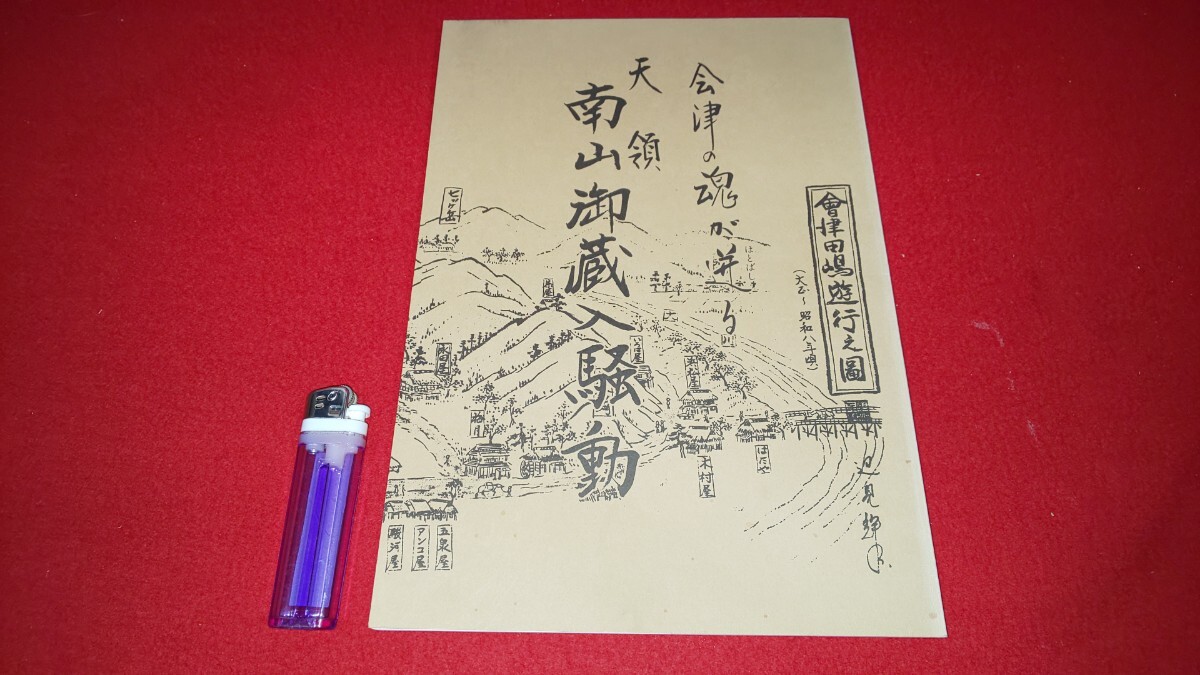 会津の魂が迸る
ほとばし
天領
南山御蔵入騒動
會津田嶋遊行之圖
(大正〜昭和八年頃)
七ッケ岳
木村屋
はたや
五泉屋
アンコ屋
駿河屋